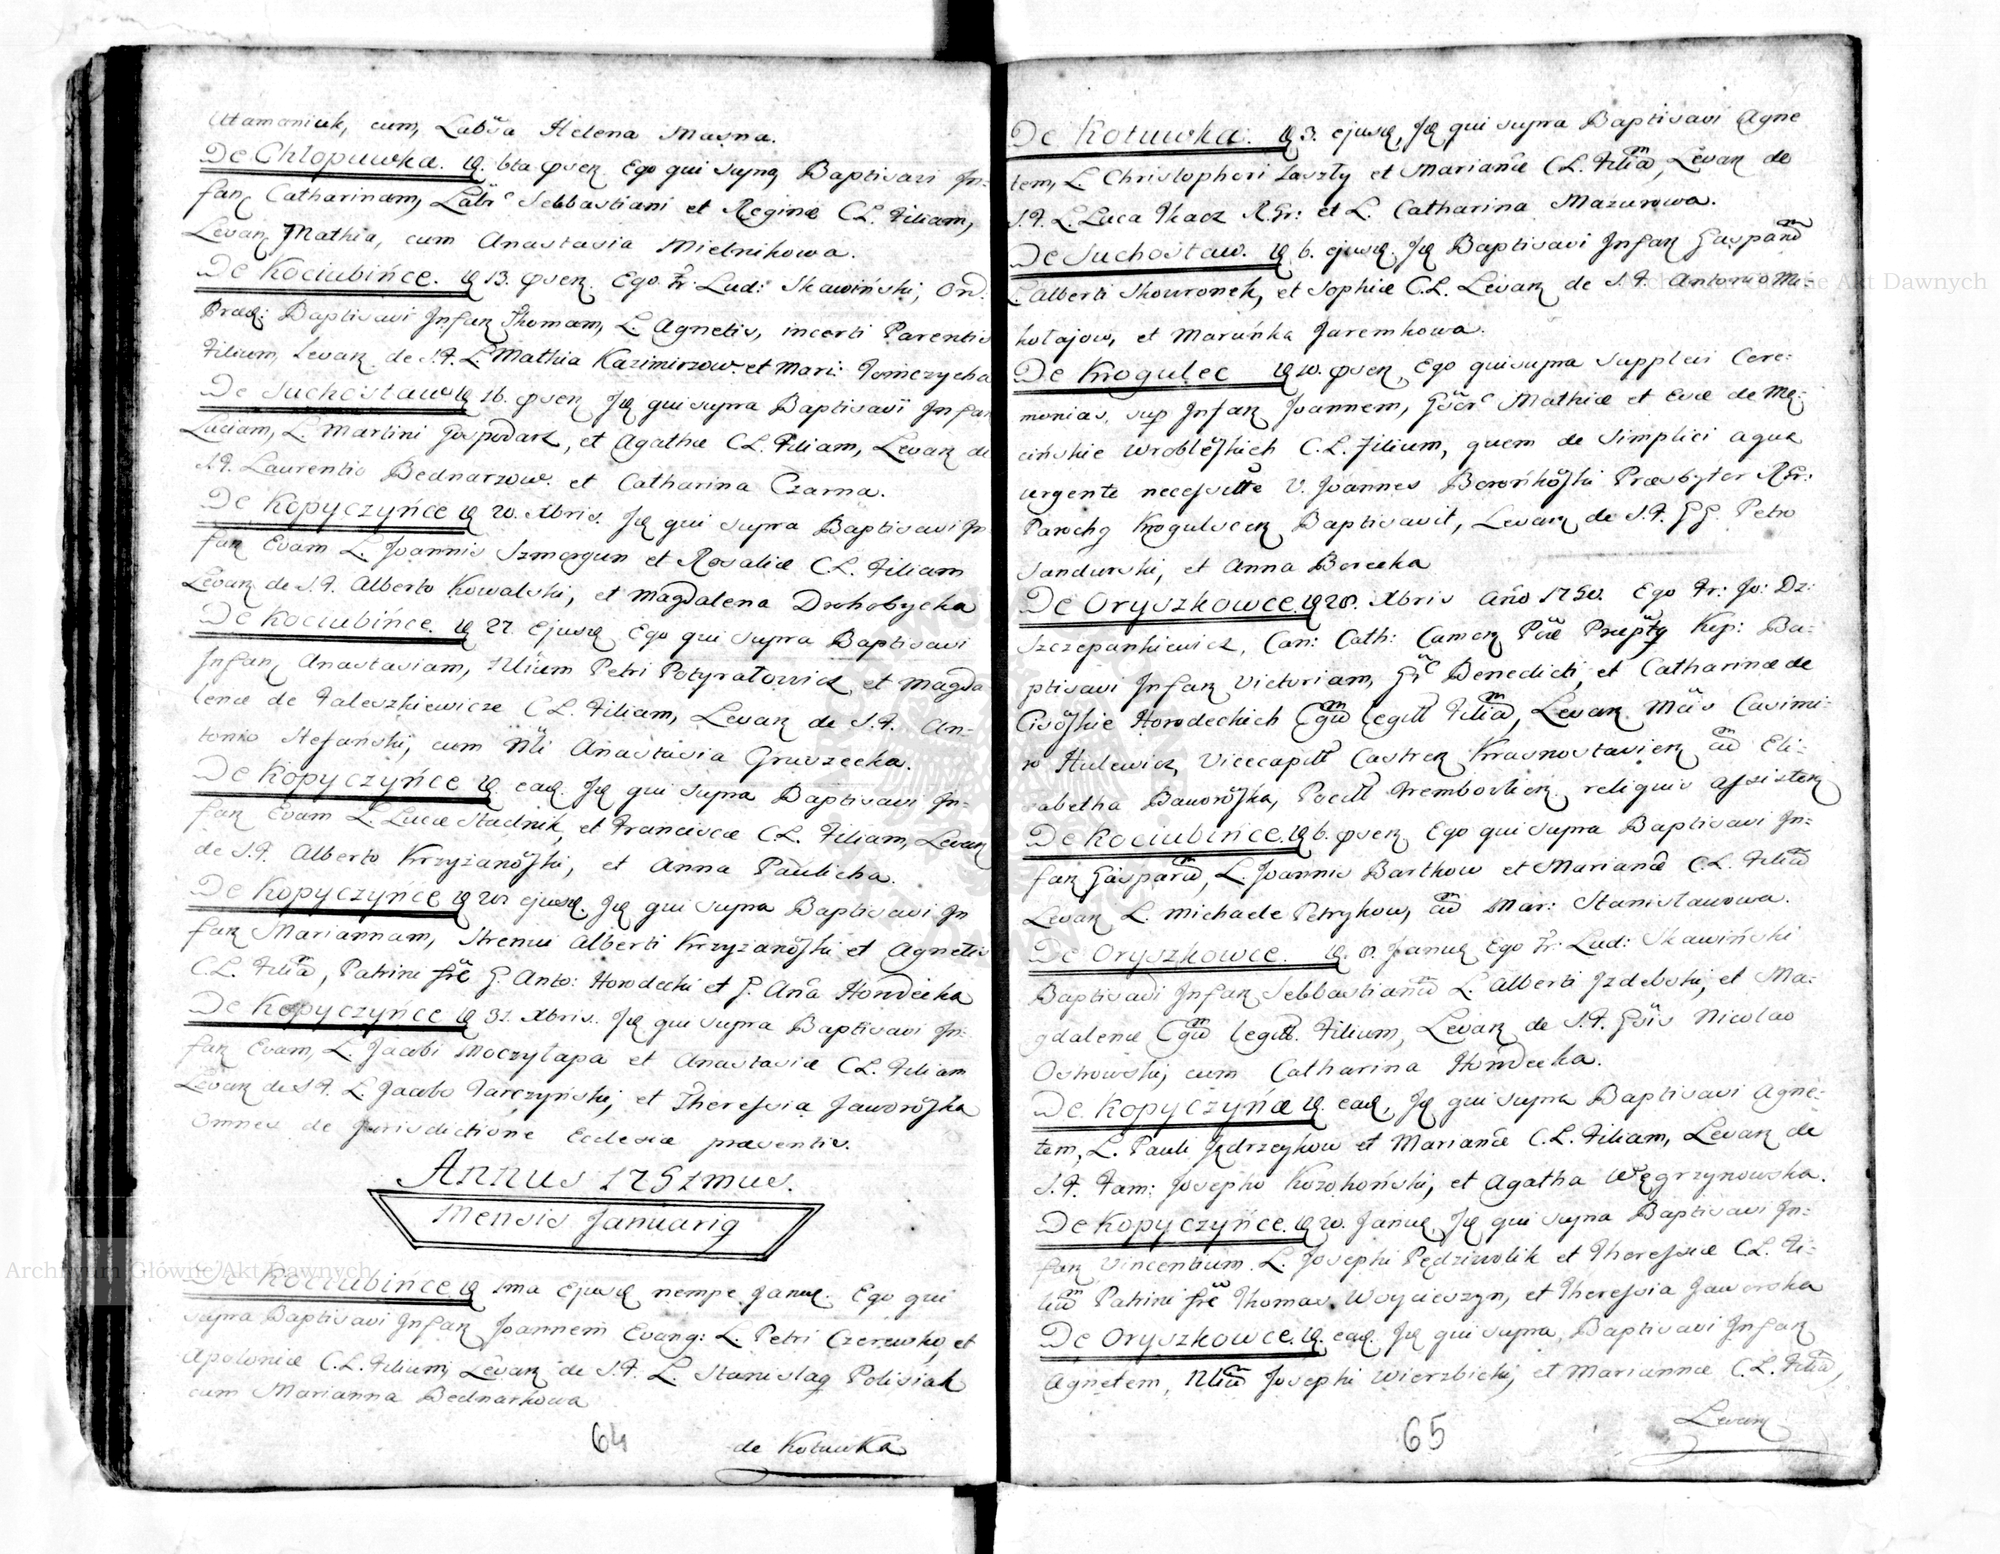 Atamaniuk, cum, Labsa Helena Masna.
De Chłopuwka. 6ta psen Ego qui supra Baptisavi In-
fan Catharinam, Labr Sebbastiani et Reginæ C.L. Filiam,
Levan Mathia, cum Anastasia Mielnikowa.
De Kociubińce. 13. psen. Ego Fr: Lud: Skawiński, Ord.
Præd: Baptisavi Infan Thomam, L. Agnetis, incerti Parentis
Filium, Levan de S.F. L. Mathia Kazimirzow. et Mari: Tomczycha
De Suchostaw 16. psen Id qui supra Baptisavi Infan
Luciam, L. Martini Gospodarz, et Agathæ C.L. Filiam, Levan de
S.F. Laurentio Bednarzow. et Catharina Czarna.
De Kopyczyńce 20. Xbris. Id qui supra Baptisavi In
fan Evam L. Joannis Szmorgun et Rosaliæ C.L. Filiam
Levan de S.F. Alberto Kowalski, et Magdalena Drohobycka
De Kociubińce. 27. Ejusd Ego qui supra Baptisavi
Infan Anastasiam, Petri Potyrałowicz et Magda
lenæ de Faleszkiewicze C.L. Filiam, Levan de S.F. An-
tonio Stefański, cum Anastasia Gruszecka.
De Kopyczyńce ead. Id qui supra Baptisavi In-
fan Evam L. Lucæ Stadnik, et Franciscæ C.L. Filiam, Levan
de S.F. Alberto Krzyżanowski, et Anna Paulicha.
De Kopyczyńce ejusd. Id qui supra Baptisavi In
fan Mariannam, Strenui Alberti Krzyżanowski et Agnetis
C.L. Filia, Patrini G. Anto: Horodecki et G. Anna Horodecka
De Kopyczyńce 31. Xbris. Id qui supra Baptisavi In-
fan Evam, L. Jacobi Moczyłapa et Anastasiæ C.L. Filiam
Levan de S.F. L. Jacobo Tarczyński, et Theressia Jaworowska
Omnes de Jurisdictione Ecclesiæ præsentis.
Annus 1751mus.
Mensis Januarii
De Kociubińce 1ma Ejusd nempe Janu. Ego qui
supra Baptisavi Infan Joannem Evang: L. Petri Czerewko, et
Apoloniæ C.L. Filium, Levan de S.F. L. Stanislao Polisiak
cum Marianna Bednarkowa
64
de Kotuwka
De Kotuwka. 3. ejusd, Id qui supra Baptisavi Agne
tem, L. Christophori Laszty et Mariannæ C.L. Filia, Levan de
S.F. L. Luca Tkacz R.Gr: et L. Catharina Mazurowa.
De Suchostaw. 6. ejusd. Id Baptisavi Infan Gaspara
L. Alberti Skowronek, et Sophiæ C.L. Levan de S.F. Antonio Mi-
kołajow, et Maruńka Jaremkowa.
De Krogulec 10. psen, Ego qui supra supplevi Cere-
monias, sup Infan Joannem, Mathiæ et Evæ de Mę-
cińskie Wroblewskich C.L. Filium, quem de simplici aqua
urgente necessitte V. Joannes Borońkowski Præsbyter R.Gr:
Parochg Krogulscen Baptisavit, Levan de S.F. GG. Petro
Sandurski, et Anna Borecka
De Oryszkowce. 28. Xbris Año 1750. Ego Fr: Jo: Dz:
Szczepankiewicz, Can: Cath: Camen Præptg Kop: Ba-
ptisavi Infan Victoriam, Benedicti et Catharinæ de
Horodeckich legitt Filia, Levan Casimi-
ro Hulewicz, Vicecapitt Castren Krasnostavien Eli-
sabetha Baworowska, Pocill Trembovlien. reliquis assisten
De Kociubińce. 6. psen, Ego qui supra Baptisavi In-
fan Gaspara, L. Joannis Bartkow et Mariannæ C.L. Filia
Levan L. Michaele Petrykow, Mar: Stanisławowa.
De Oryszkowce. 8. Janu Ego Fr: Lud: Skawiński
Baptisavi Infan Sebbastiana L. Alberti Izdebski, et Ma-
gdalenæ legitt. Filium, Levan de S.F. Nicolao
Ostrowski, cum Catharina Horodecka.
De Kopyczyńce ead, Id qui supra Baptisavi Agne-
tem, L. Pauli Jędrzeykow et Mariannæ C.L. Filiam, Levan de
S.F. Fam: Josepho Kozokoński, et Agatha Węgrzynowska.
De Kopyczyńce. 20. Janu. Id qui supra Baptisavi In-
fan Vincentium. L. Josephi Pędziwolik et Theressiæ C.L. Fi-
lium Patrini Thomas Woyciesszyn, et Theressia Jaworska
De Oryszkowce. ead. Id qui supra, Baptisavi Infan
Agnetem, Josephi Wierzbicki, et Mariannæ C.L. Filia,
Levan
65
Archiwum Główne Akt Dawnych
Archiwum Główne Akt Dawnych